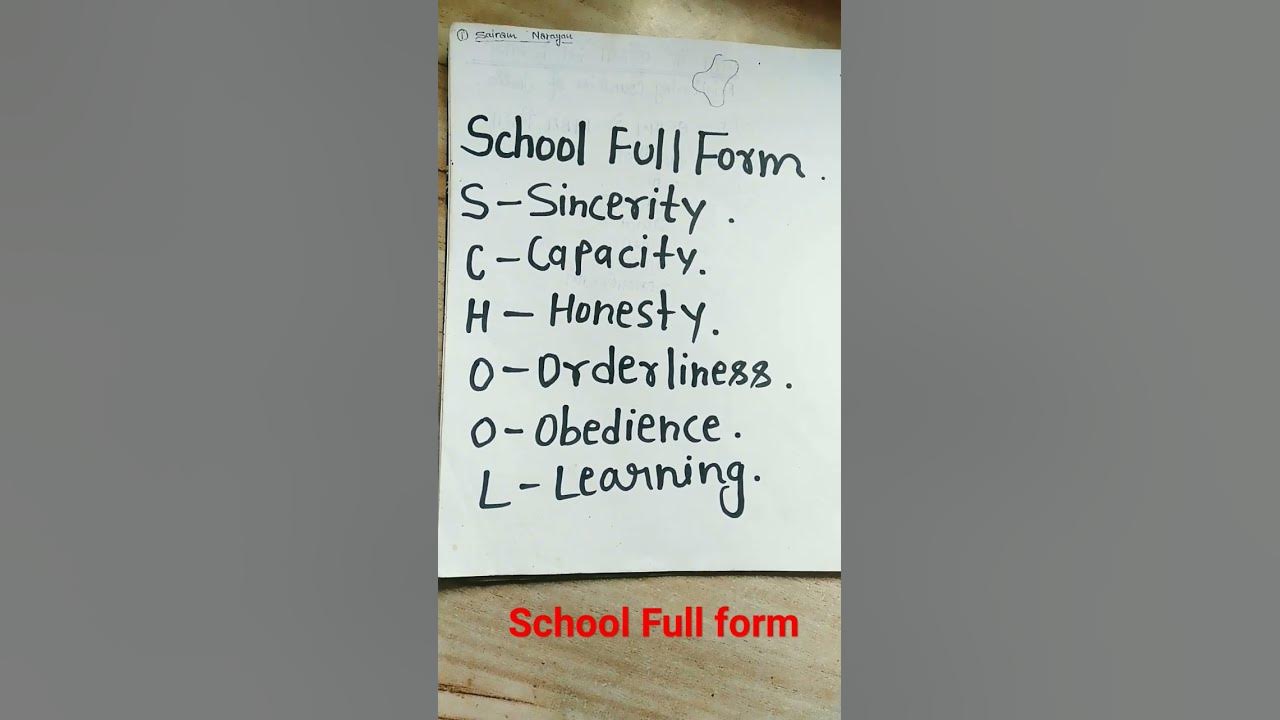 ① Sairam Narayan
School Full Form.
S - Sincerity.
C - Capacity.
H - Honesty.
O - Orderliness.
O - Obedience.
L - Learning.
School Full form